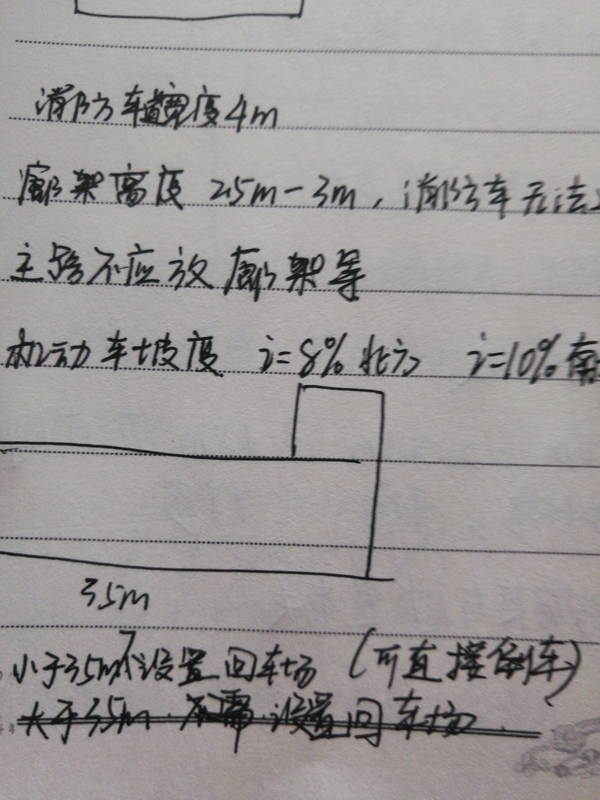 消防车道宽度4m
廊架高度 2.5m-3m，消防车无法
主路不应放廊架等
机动车坡度 i=8% 北方 i=10% 南
35m
小于35m不设置回车场（可直接倒车）
大于35m 不需设置回车场